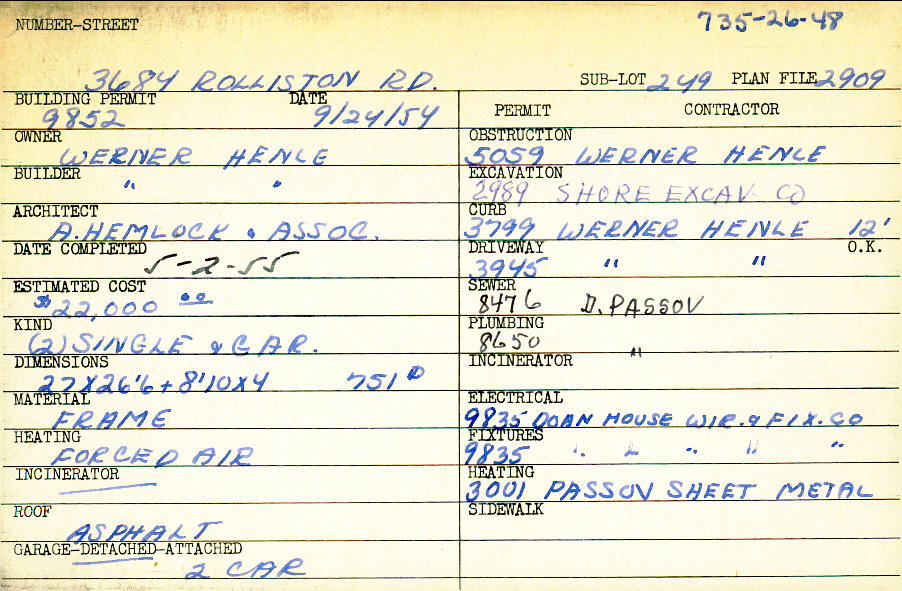 735-26-48
NUMBER-STREET
3684 ROLLISTON RD.
SUB-LOT 249 PLAN FILE 2909
BUILDING PERMIT DATE
9852 9/24/54
OWNER
WERNER HENLE
BUILDER
" "
ARCHITECT
A. HEMLOCK & ASSOC.
DATE COMPLETED
5-2-55
ESTIMATED COST
$22,000 00
KIND
(2) SINGLE & GAR.
DIMENSIONS
27X26'6+8'10X4 751
MATERIAL
FRAME
HEATING
FORCED AIR
INCINERATOR
ROOF
ASPHALT
GARAGE-DETACHED-ATTACHED
2 CAR
PERMIT CONTRACTOR
OBSTRUCTION
5059 WERNER HENLE
EXCAVATION
2989 SHORE EXCAV. CO
CURB
3799 WERNER HENLE 12'
DRIVEWAY O.K.
3945 " "
SEWER
8476 D. PASSOV
PLUMBING
8650 "
INCINERATOR
ELECTRICAL
9835 DOAN HOUSE WIR. & FIX. CO
FIXTURES
9835 " " " " "
HEATING
3001 PASSOV SHEET METAL
SIDEWALK